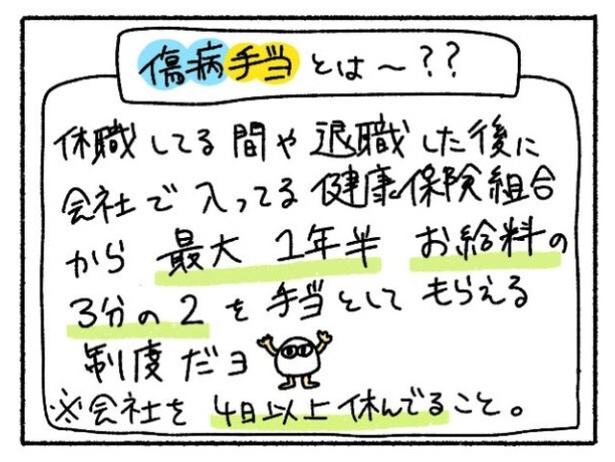 傷病手当とは〜??
休職してる間や退職した後に
会社で入ってる健康保険組合
から最大1年半お給料の
3分の2を手当としてもらえる
制度だヨ
※会社を4日以上休んでること。